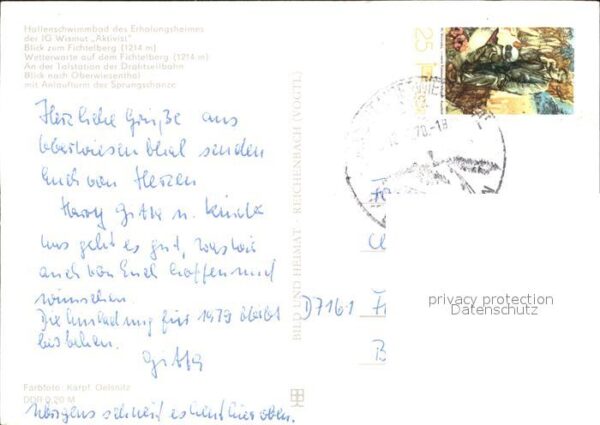 Hallenschwimmbad des Erholungsheimes
der IG Wismut „Aktivist"
Blick zum Fichtelberg (1214 m)
Wetterwarte auf dem Fichtelberg (1214 m)
An der Talstation der Drahtseilbahn
Blick nach Oberwiesenthal
mit Anlaufturm der Sprungschanze
Herzliche Grüße aus
Oberwiesenthal senden
Euch von Herzen
Harry Gitta u. Kinder
Uns geht es gut, was wir
auch von Euch hoffen und
wünschen.
Die Einladung für 1979 bleibt
bestehen.
Gitta
Farbfoto: Karpf, Oelsnitz
DDR 0,20 M
Übrigens schneit es heut hier oben.
BILD UND HEIMAT · REICHENBACH (VOGTL)
25
D7161
privacy protection
Datenschutz